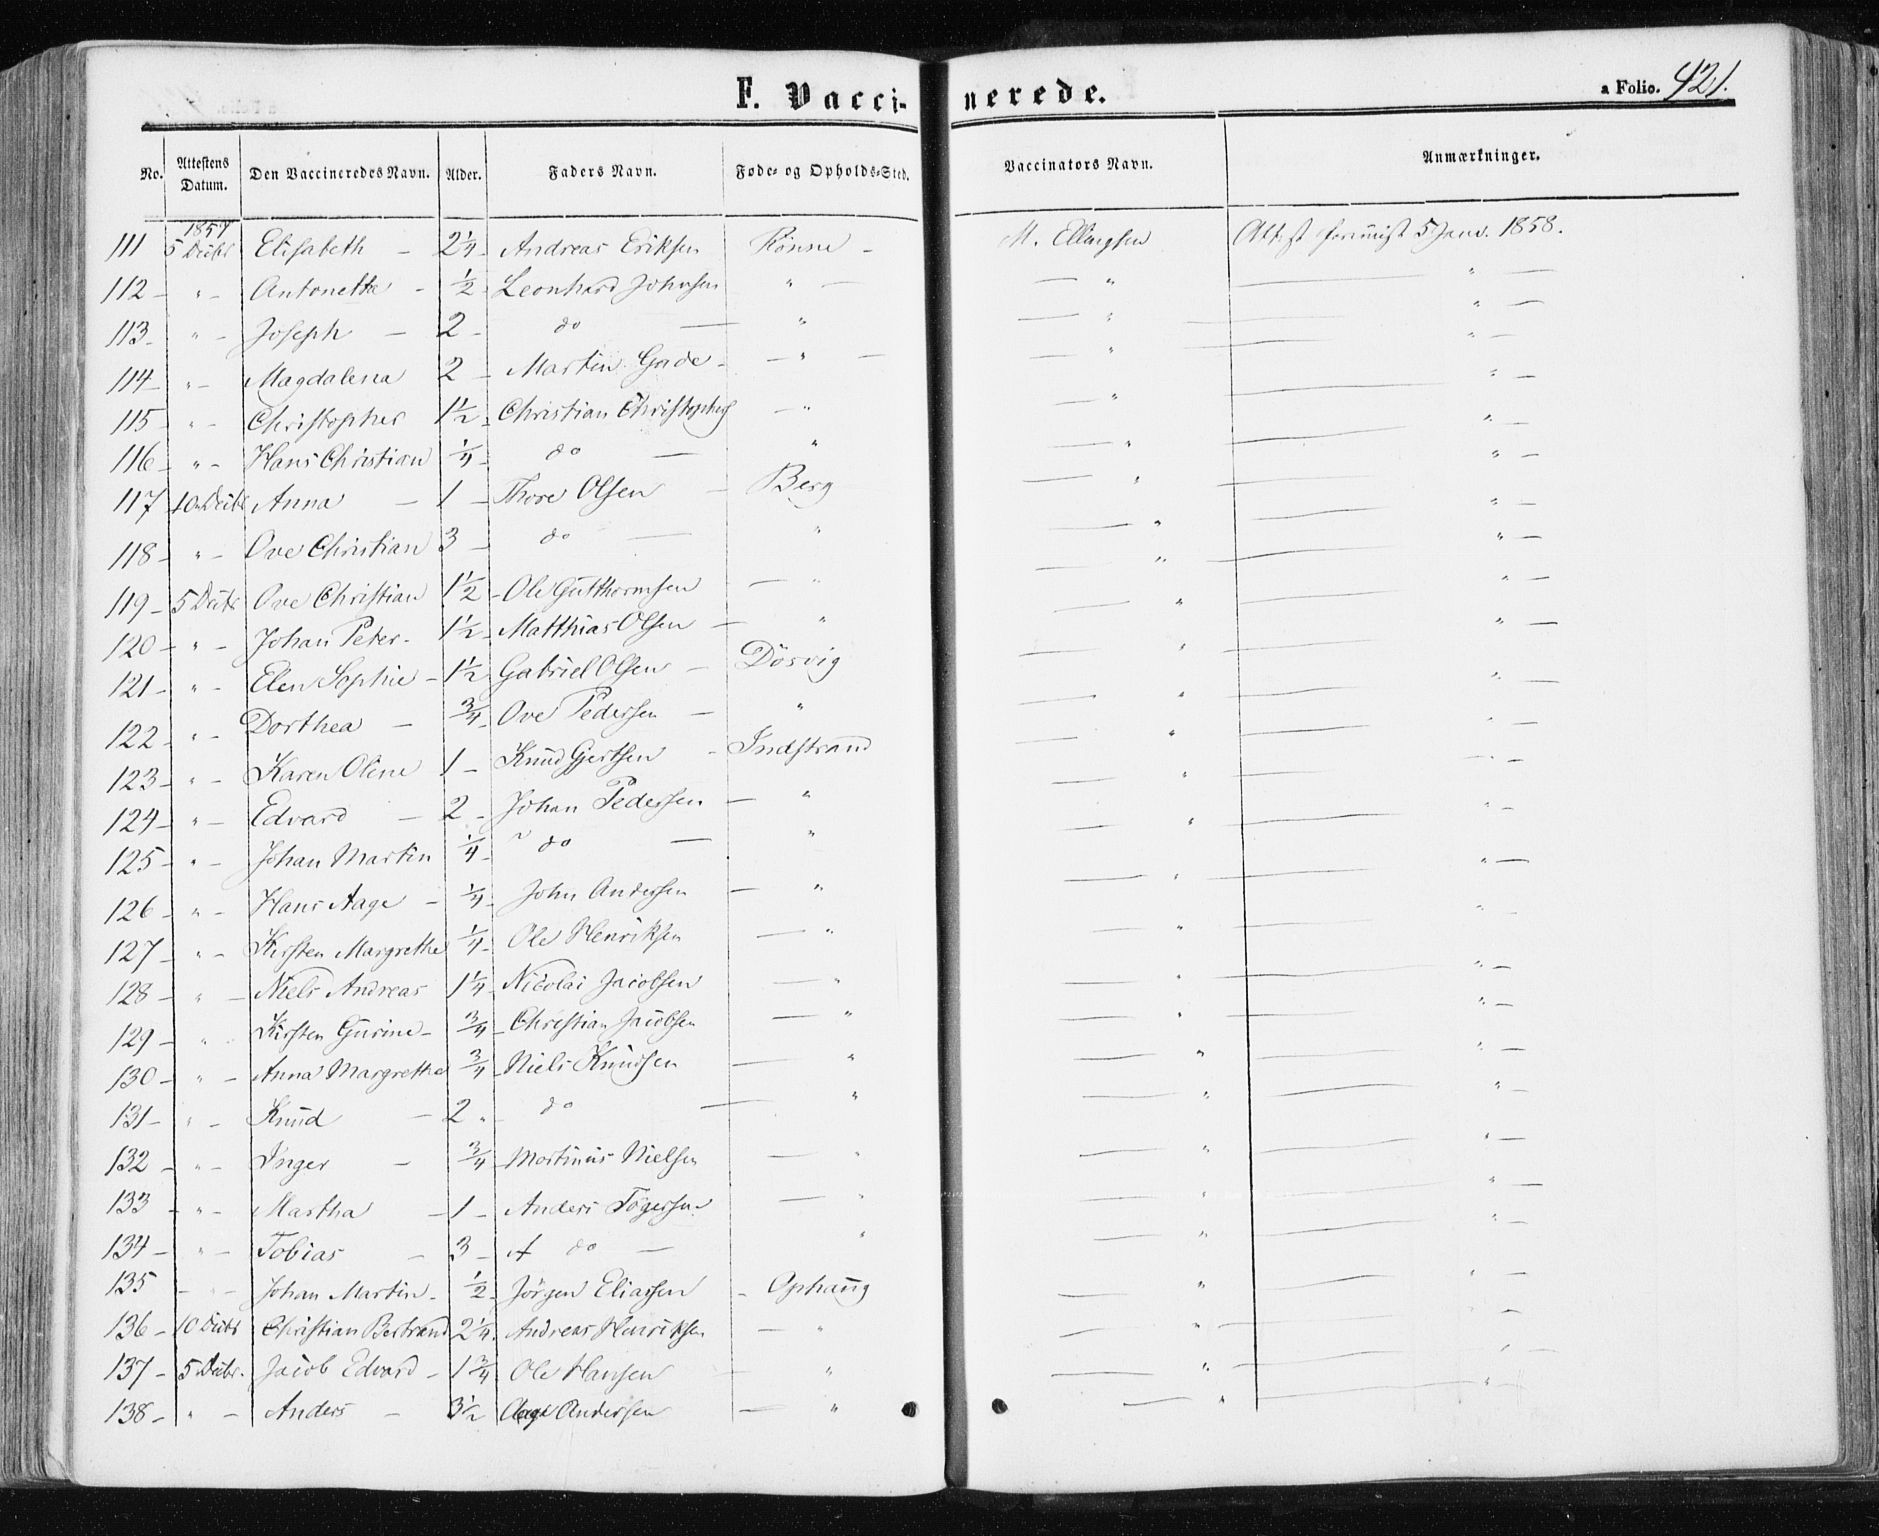 F. Vaccinerede. a Folio. 421.
No. Attestens Datum. Den Vaccineredes Navn. Alder. Faders Navn. Føde- og Opholds-Sted. Vaccinators Navn. Anmærkninger.
1857
111 5 Decbr Elisabeth - 2 1/4 - Andreas Eriksen Rönne - M. Ellingsen Attest 5 Janv. 1858.
112 - " - Antonette - 1/2 - Leonhard Johnsen " — — " — " —
113 - " - Joseph — 2 - do — " — " — " —
114 - " - Magdalena 2 - Martin Gade - — " — — " — " —
115 - " - Christopher 1 1/2 - Christian Christophers — " — " — " —
116 - " - Hans Christian 1/4 - do — " — " — " —
117 10 Decbr Anna — 1 - Thore Olsen - Berg — " — " —
118 - " - Ove Christian 3 - do — " — " — " —
119 - 5 Decbr Ove Christian 1 1/2 - Ole Gutthormsen — " — " — " —
120 - " - Johan Peter - 1 1/2 - Matthias Olsen — " — " — " —
121 - " - Elen Sophie - 1 1/2 Gabriel Olsen - Dösvig — " — " —
122 - " - Dorthea - 3/4 - Ove Pedersen — " — " — " —
123 - " - Karen Oline 1 - Knud Gjertsen - Indstrand — " — " —
124 - " - Edvard — 2 - Johan Pedersen — " — " — " —
125 - " - Johan Martin 1/4 - " do — " — " — " —
126 - " - Hans Aage - 1/4 - John Andersen — " — " — " —
127 - " - Kirsten Margrethe 1/4 - Ole Henriksen — " — " — " —
128 - " - Niels Andreas 1 1/4 - Nicolai Jacobsen — " — " — " —
129 - " - Kirsten Gurine - 3/4 - Christian Jacobsen — " — " — " —
130 - " - Anna Margrethe 3/4 - Niels Knudsen — " — " — " —
131 - " - Knud - 2 " do — " — " — " —
132 - " - Inger - 3/4 - Mortinus Nielsen — " — " — " —
133 - " - Martha - 1 - Anders Tögersen — " — " — " —
134 - " - Tobias - 3 - A do — " — " — " —
135 - " - Johan Martin - 1/2 - Jörgen Eliassen - Ophaug — " — " —
136 - 10 Decbr Christian Bertrand 2 1/4 - Andreas Henriksen — " — " — " —
137 - 5 Decbr. Jacob Edvard - 1 3/4 Ole Hansen — " — " — " —
138 - " - Anders - 3 1/2 Aage Andersen — " — " — "